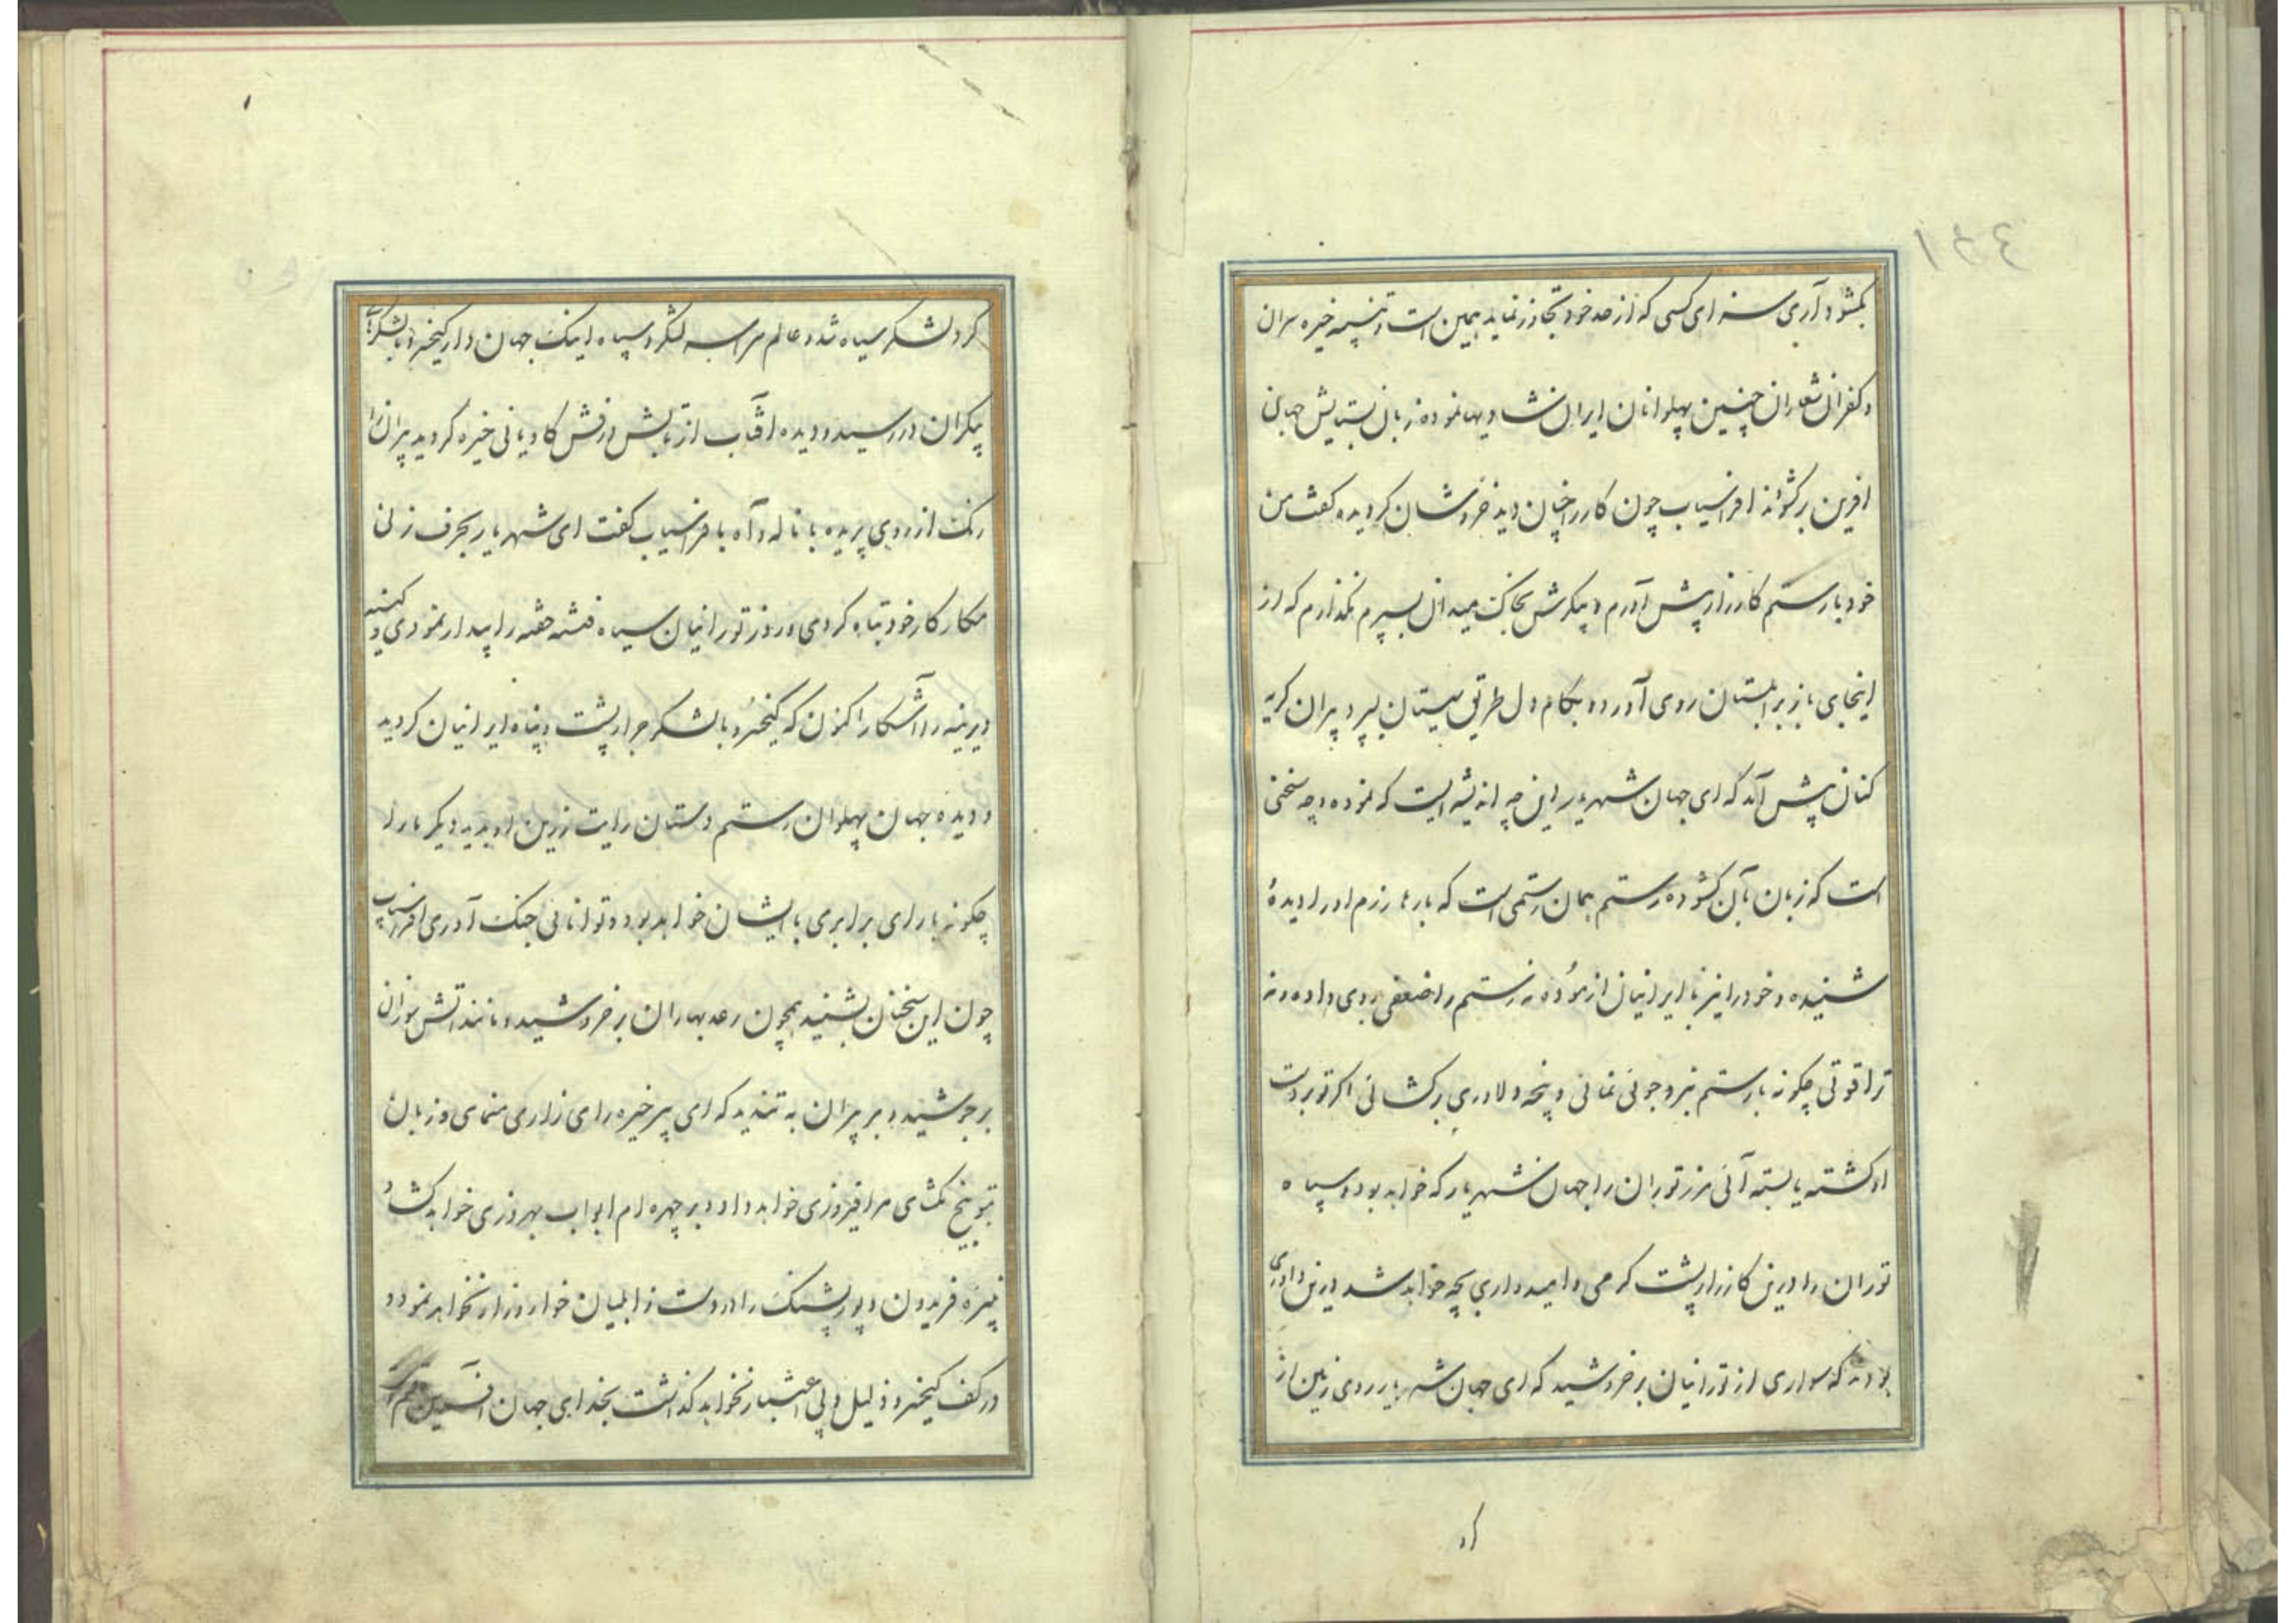 ۱۴۴
بکشود آری سزای کسی که از حد خود تجاوز نماید همین است و تنبیه خیره سران
و کفران شعاران چنین پهلوانان ایران نشادیها نموده زبان بستایش جهان
افرین برکشودند افراسیاب چون کار را چنان دید خروشان کردیده کفت من
خود با رستم کارزار پیش آورم و پیکرش بخاک میدان بسپرم نکذارم که از
اینجای باز بزابلستان روی آورد و بکام دل طریق سیستان سپرد پیران کریه
کنان پیش آمد که ای جهان شهریار این چه اندیشه ایست که نموده و چه سخنی
است که زبان بآن کشوده رستم همان رستمی است که بارها رزم او را دیدهٔ
شنیده و خود را نیز با ایرانیان ازموده نه رستم را ضعفی روی داده و نه
ترا قوتی چکونه با رستم نبرد جوئی نمائی و پنجه دلاوری برکشائی اکر تو بردست
او کشته یا بسته آئی مرز توران را جهان شهریار که خواهد بود و سپاه
توران را درین کارزار پشت کرمی و امیدواری بچه خواهد شد درین داوری
بودند که سواری از تورانیان برخروشید که ای جهان شهریار روی زمین از
کرد
کرد لشکر سیاه شد و عالم سراسر لشکر و سپاه اینک جهان دار کیخسرو با لشکری
بیکران در رسید و دیده آفتاب از تابش درفش کاویانی خیره کردید پیران را
رنک از روی پریده با ناله و آه با افراسیاب کفت ای شهریار بحرف زن
مکار کار خود تباه کردی و روز تورانیان سیاه فتنه خفته را بیدار نمودی و کینه
دیرینه را آشکار اکنون که کیخسرو با لشکر جرار پشت و پناه ایرانیان کردید
و دیده جهان پهلوان رستم دستان رایت زرین او بدید دیکر ما را
چکونه یارای برابری با ایشان خواهد بود و توانائی جنک آوری افراسیاب
چون این سخنان بشنید همچون رعد بهاران بر خروشید و مانند آتش سوزان
برجوشید و بر پیران به تندید که ای پیر خیره رای زاری منمای و زبان
بتوبیخ مکشای مرا فیروزی خواهد داد و بر چهره ام ابواب بهروزی خواهد کشاد
نبیره فریدون و پور پشنک را در دست زابلیان خوار و زار نخواهد نمود و
در کف کیخسرو ذلیل و بی اعتبار نخواهد کذاشت بخدای جهان آفرین قسم